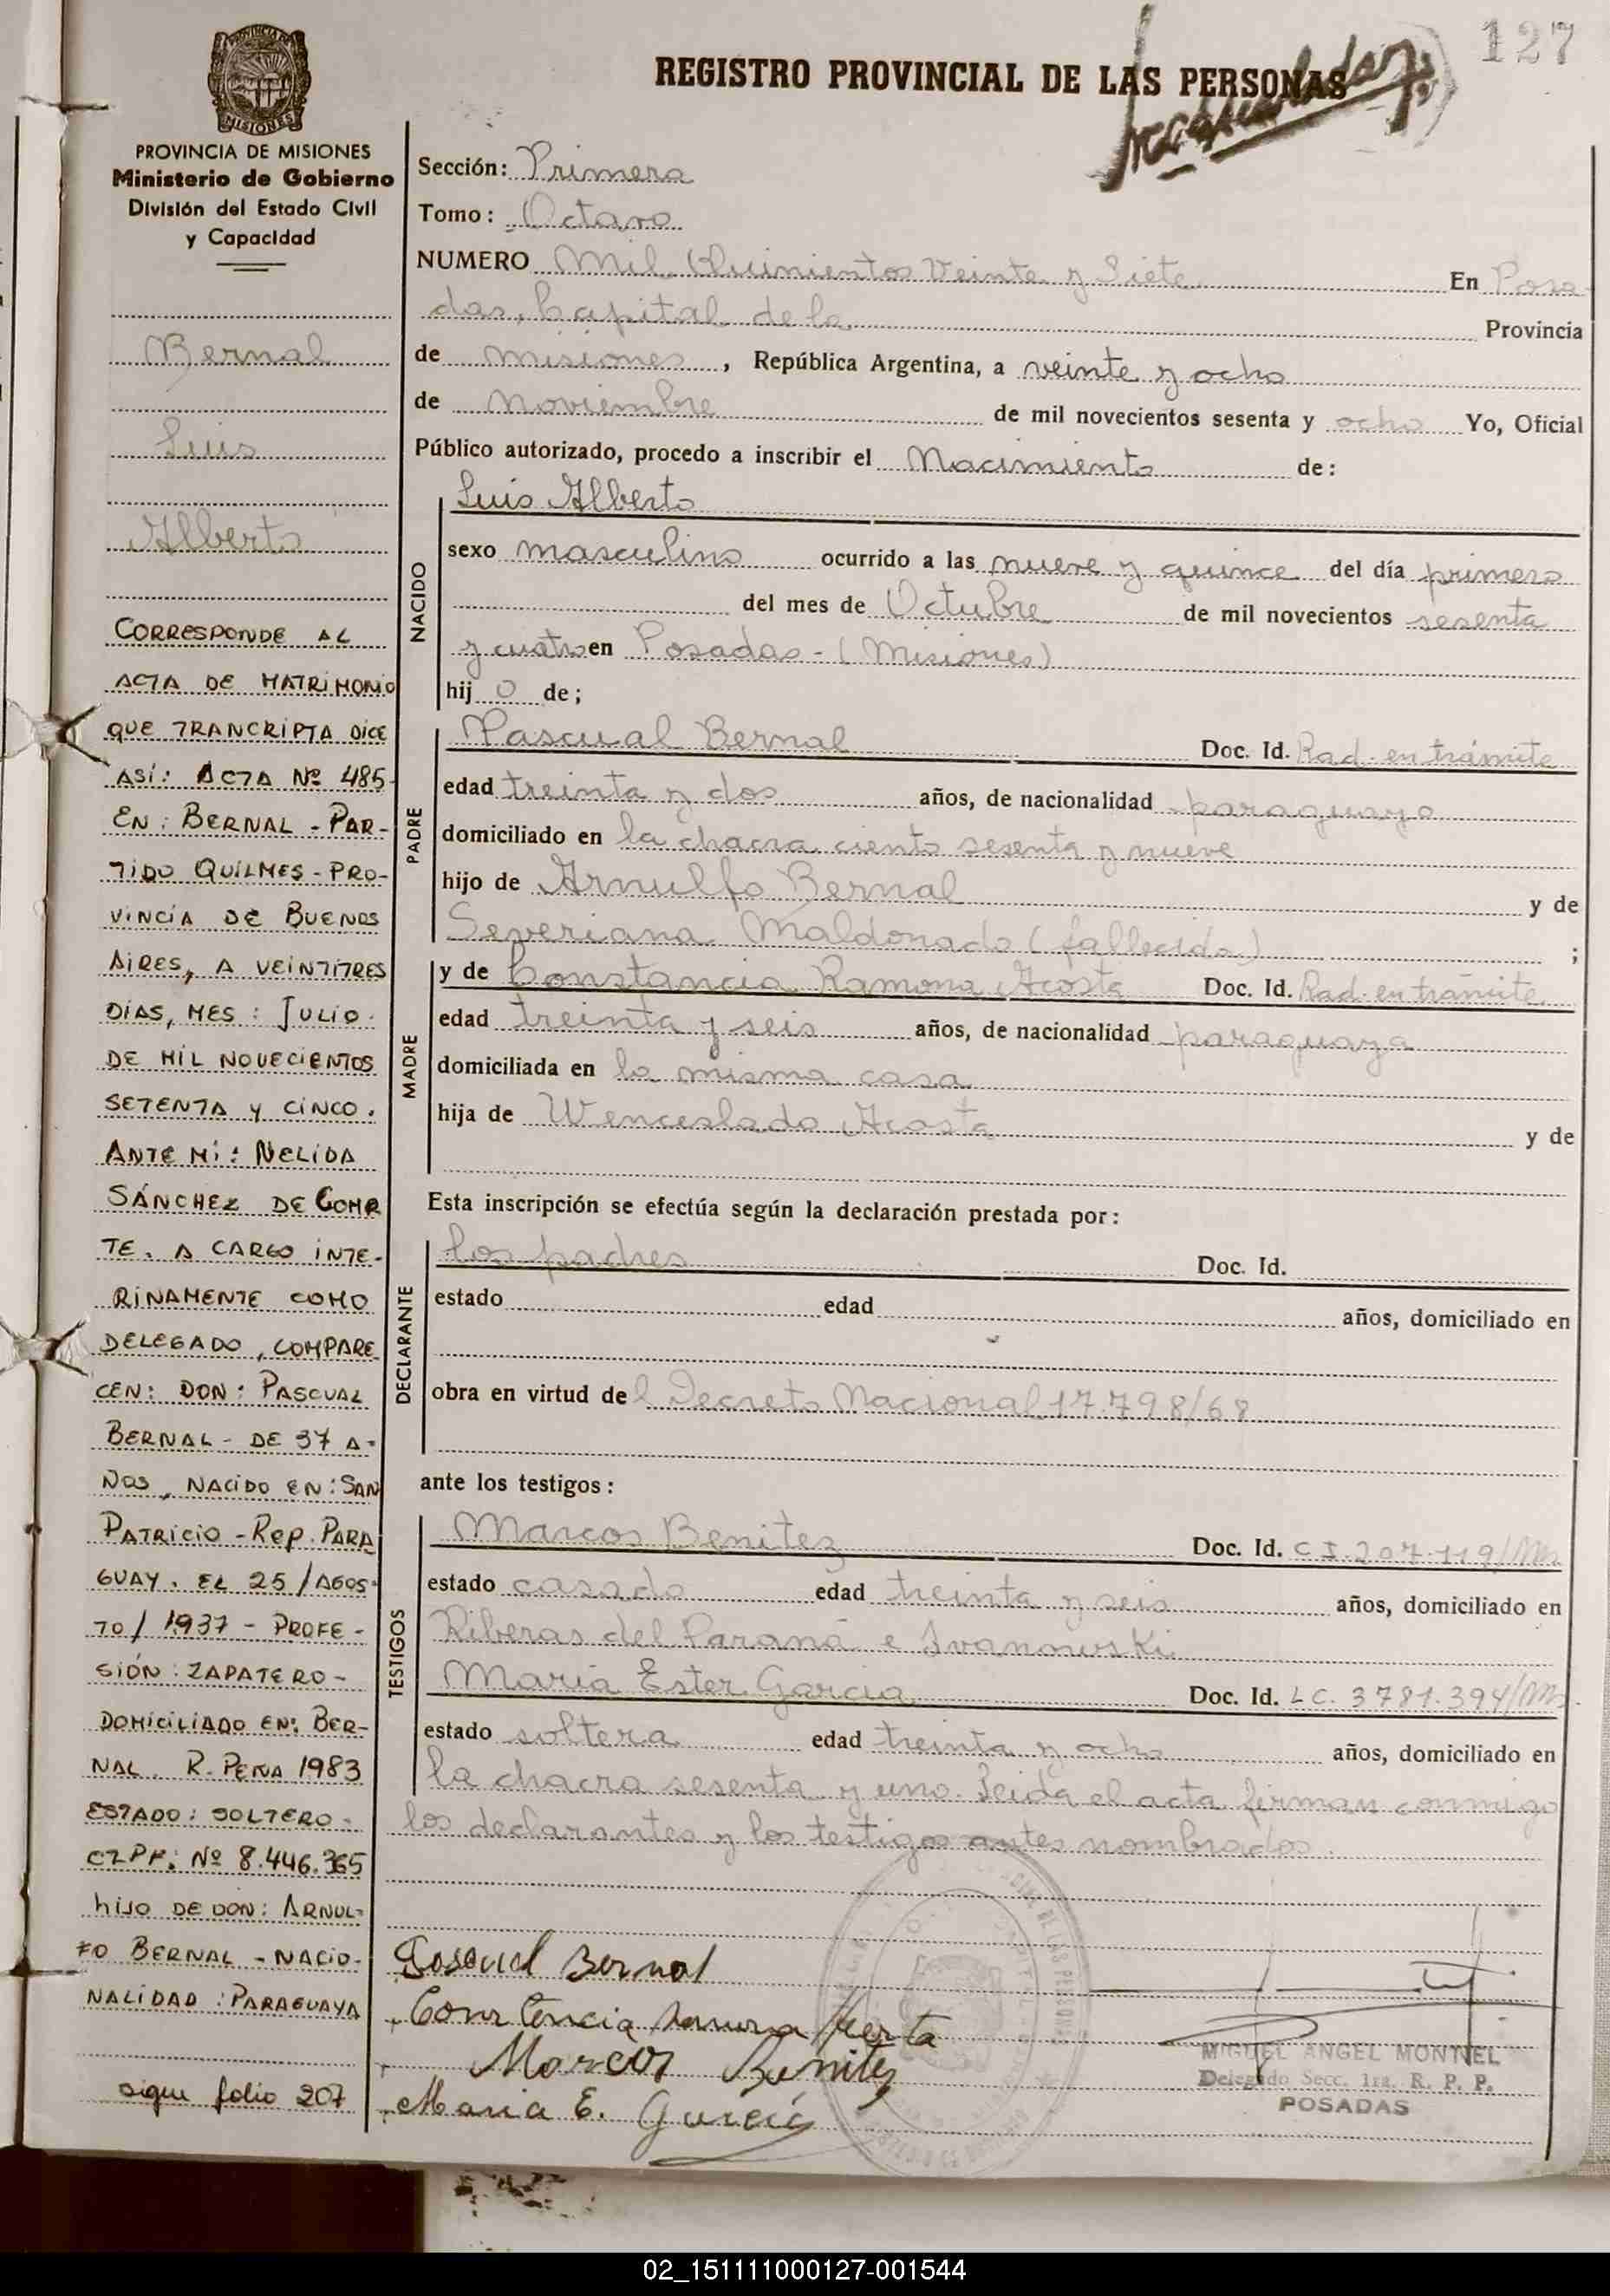 127
REGISTRO PROVINCIAL DE LAS PERSONAS
MISIONES
PROVINCIA DE MISIONES
Ministerio de Gobierno
División del Estado Civil
y Capacidad
Bernal
Luis
Alberto
CORRESPONDE AL
ACTA DE MATRIMONIO
QUE TRANCRIPTA DICE
ASÍ: ACTA Nº 485-
EN: BERNAL - PAR-
TIDO QUILMES - PRO-
VINCIA DE BUENOS
AIRES, A VEINTITRES
DIAS, MES: JULIO.
DE MIL NOVECIENTOS
SETENTA Y CINCO.
ANTE MI: NELIDA
SÁNCHEZ DE GOMA
TE. A CARGO INTE-
RINAMENTE COMO
DELEGADO, COMPARE
CEN: DON: PASCUAL
BERNAL - DE 37 A-
ÑOS, NACIDO EN: SAN
PATRICIO - REP. PARA
GUAY. EL 25/AGOS-
TO/1937 - PROFE-
SIÓN: ZAPATERO-
DOMICILIADO EN: BER-
NAL. R. PEÑA 1983
ESTADO: SOLTERO-
CIPF: Nº 8.446.365
HIJO DE DON: ARNUL-
FO BERNAL - NACIO-
NALIDAD: PARAGUAYA
sigue folio 207
Sección: Primera
Tomo: Octavo
NUMERO Mil Quinientos Veinte y Siete En Posa-
das, Capital de la Provincia
de Misiones, República Argentina, a veinte y ocho
de Noviembre de mil novecientos sesenta y ocho Yo, Oficial
Público autorizado, procedo a inscribir el Nacimiento de:
NACIDO
Luis Alberto
sexo masculino ocurrido a las nueve y quince del día primero
del mes de Octubre de mil novecientos sesenta
y cuatro en Posadas - (Misiones)
hij o de;
PADRE
Pascual Bernal Doc. Id. Rad. en trámite
edad treinta y dos años, de nacionalidad paraguayo
domiciliado en la chacra ciento sesenta y nueve
hijo de Arnulfo Bernal y de
Severiana Maldonado (fallecida) ;
MADRE
y de Constancia Ramona Acosta Doc. Id. Rad. en trámite
edad treinta y seis años, de nacionalidad paraguaya
domiciliada en la misma casa
hija de Wenceslado Acosta y de
Esta inscripción se efectúa según la declaración prestada por:
DECLARANTE
los padres Doc. Id.
estado edad años, domiciliado en
obra en virtud del Decreto Nacional 17.798/68
ante los testigos:
TESTIGOS
Marcos Benitez Doc. Id. C I 207.119/Ms
estado casado edad treinta y seis años, domiciliado en
Riberas del Paraná e Ivanowski
María Ester Garcia Doc. Id. LC. 3781.394/Ms.
estado soltera edad treinta y ocho años, domiciliado en
la chacra sesenta y uno. Leida el acta firman conmigo
los declarantes y los testigos antes nombrados.
Pascual Bernal
Constancia Ramona Acosta
Marcos Benitez
Maria E. Garcia
MIGUEL ANGEL MONTIEL
Delegado Secc. 1ra. R. P. P.
POSADAS
02_151111000127-001544